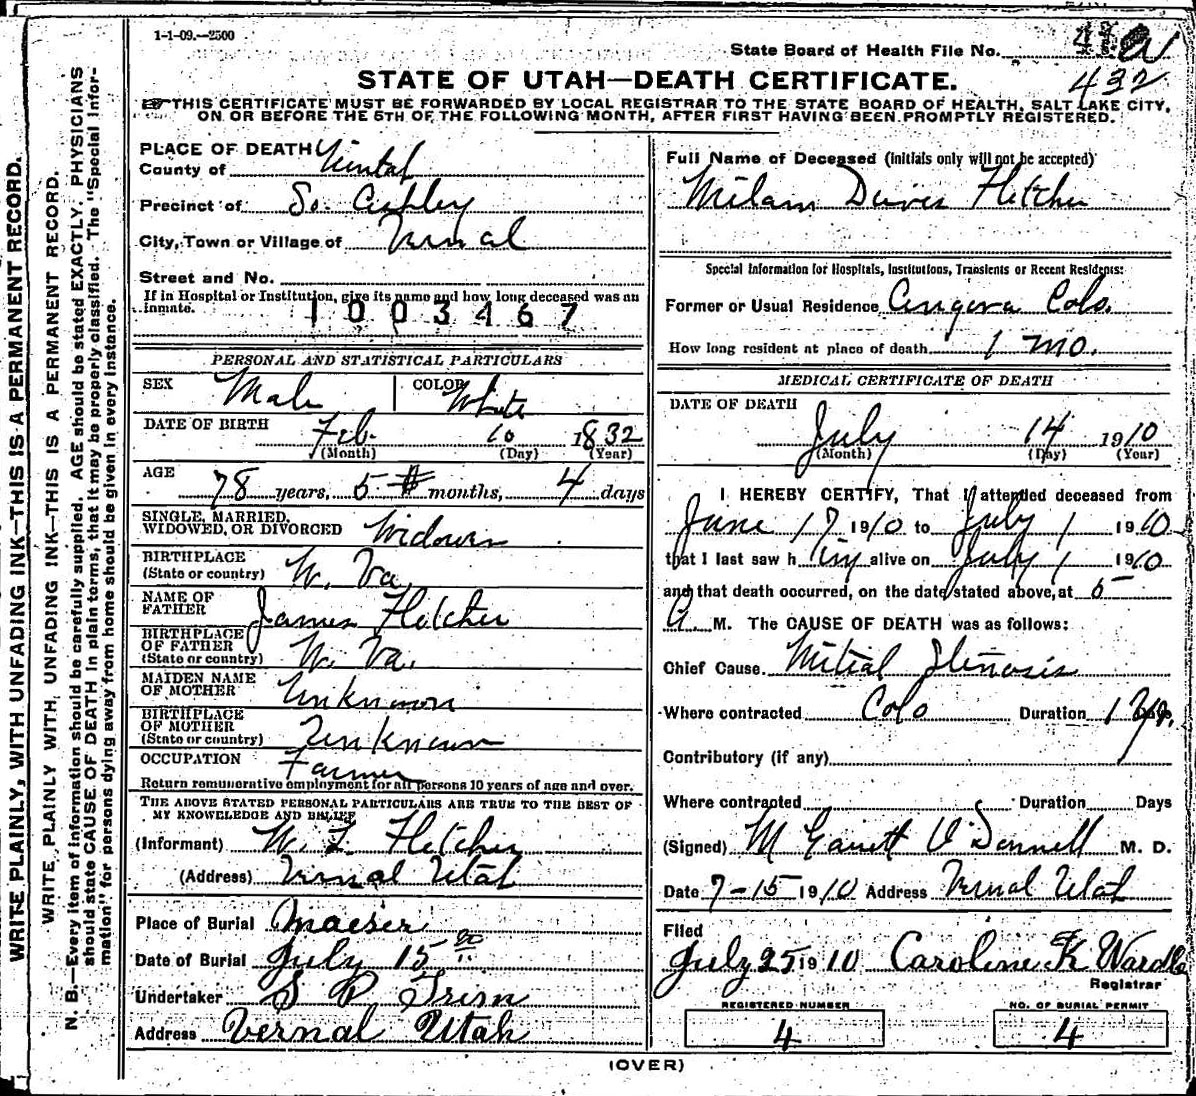 1-1-09.--2500
State Board of Health File No.
432
STATE OF UTAH—DEATH CERTIFICATE.
THIS CERTIFICATE MUST BE FORWARDED BY LOCAL REGISTRAR TO THE STATE BOARD OF HEALTH, SALT LAKE CITY,
ON OR BEFORE THE 5TH OF THE FOLLOWING MONTH, AFTER FIRST HAVING BEEN PROMPTLY REGISTERED.
WRITE PLAINLY, WITH UNFADING INK—THIS IS A PERMANENT RECORD.
WRITE PLAINLY WITH UNFADING INK—THIS IS A PERMANENT RECORD.
N. B.—Every item of information should be carefully supplied. AGE should be stated EXACTLY. PHYSICIANS
should state CAUSE OF DEATH in plain terms, that it may be properly classified. The "Special Infor-
mation" for persons dying away from home should be given in every instance.
PLACE OF DEATH
County of Uintah
Precinct of So. Ashley
City, Town or Village of Vernal
Street and No.
If in Hospital or Institution, give its name and how long deceased was an
inmate.
1003467
PERSONAL AND STATISTICAL PARTICULARS
SEX Male COLOR White
DATE OF BIRTH Feb. 10 1832
(Month) (Day) (Year)
AGE 78 years, 5 months, 4 days
SINGLE, MARRIED,
WIDOWED, OR DIVORCED Widower
BIRTHPLACE
(State or country) W. Va.
NAME OF
FATHER James Fletcher
BIRTHPLACE
OF FATHER
(State or country) W. Va.
MAIDEN NAME
OF MOTHER Unknown
BIRTHPLACE
OF MOTHER
(State or country) Unknown
OCCUPATION Farmer
Return remunerative employment for all persons 10 years of age and over.
THE ABOVE STATED PERSONAL PARTICULARS ARE TRUE TO THE BEST OF
MY KNOWLEDGE AND BELIEF
(Informant) W. L. Fletcher
(Address) Vernal Utah
Place of Burial Maeser
Date of Burial July 15
Undertaker S P Trim
Address Vernal Utah
Full Name of Deceased (initials only will not be accepted)
Milam Fletcher
Special Information for Hospitals, Institutions, Transients or Recent Residents:
Former or Usual Residence Angora Colo.
How long resident at place of death 1 mo.
MEDICAL CERTIFICATE OF DEATH
DATE OF DEATH
July 14 1910
(Month) (Day) (Year)
I HEREBY CERTIFY, That I attended deceased from
June 17 1910 to July 1 1910
that I last saw him alive on July 1 1910
and that death occurred, on the date stated above, at 5
A M. The CAUSE OF DEATH was as follows:
Chief Cause Mitral Stenosis
Where contracted Colo Duration 1 Days
Contributory (if any)
Where contracted Duration Days
(Signed) M Garrett O'Donnell M. D.
Date 7-15 1910 Address Vernal Utah
Filed
July 25 1910 Caroline K Wardle
Registrar
REGISTERED NUMBER
4
NO. OF BURIAL PERMIT
4
(OVER)